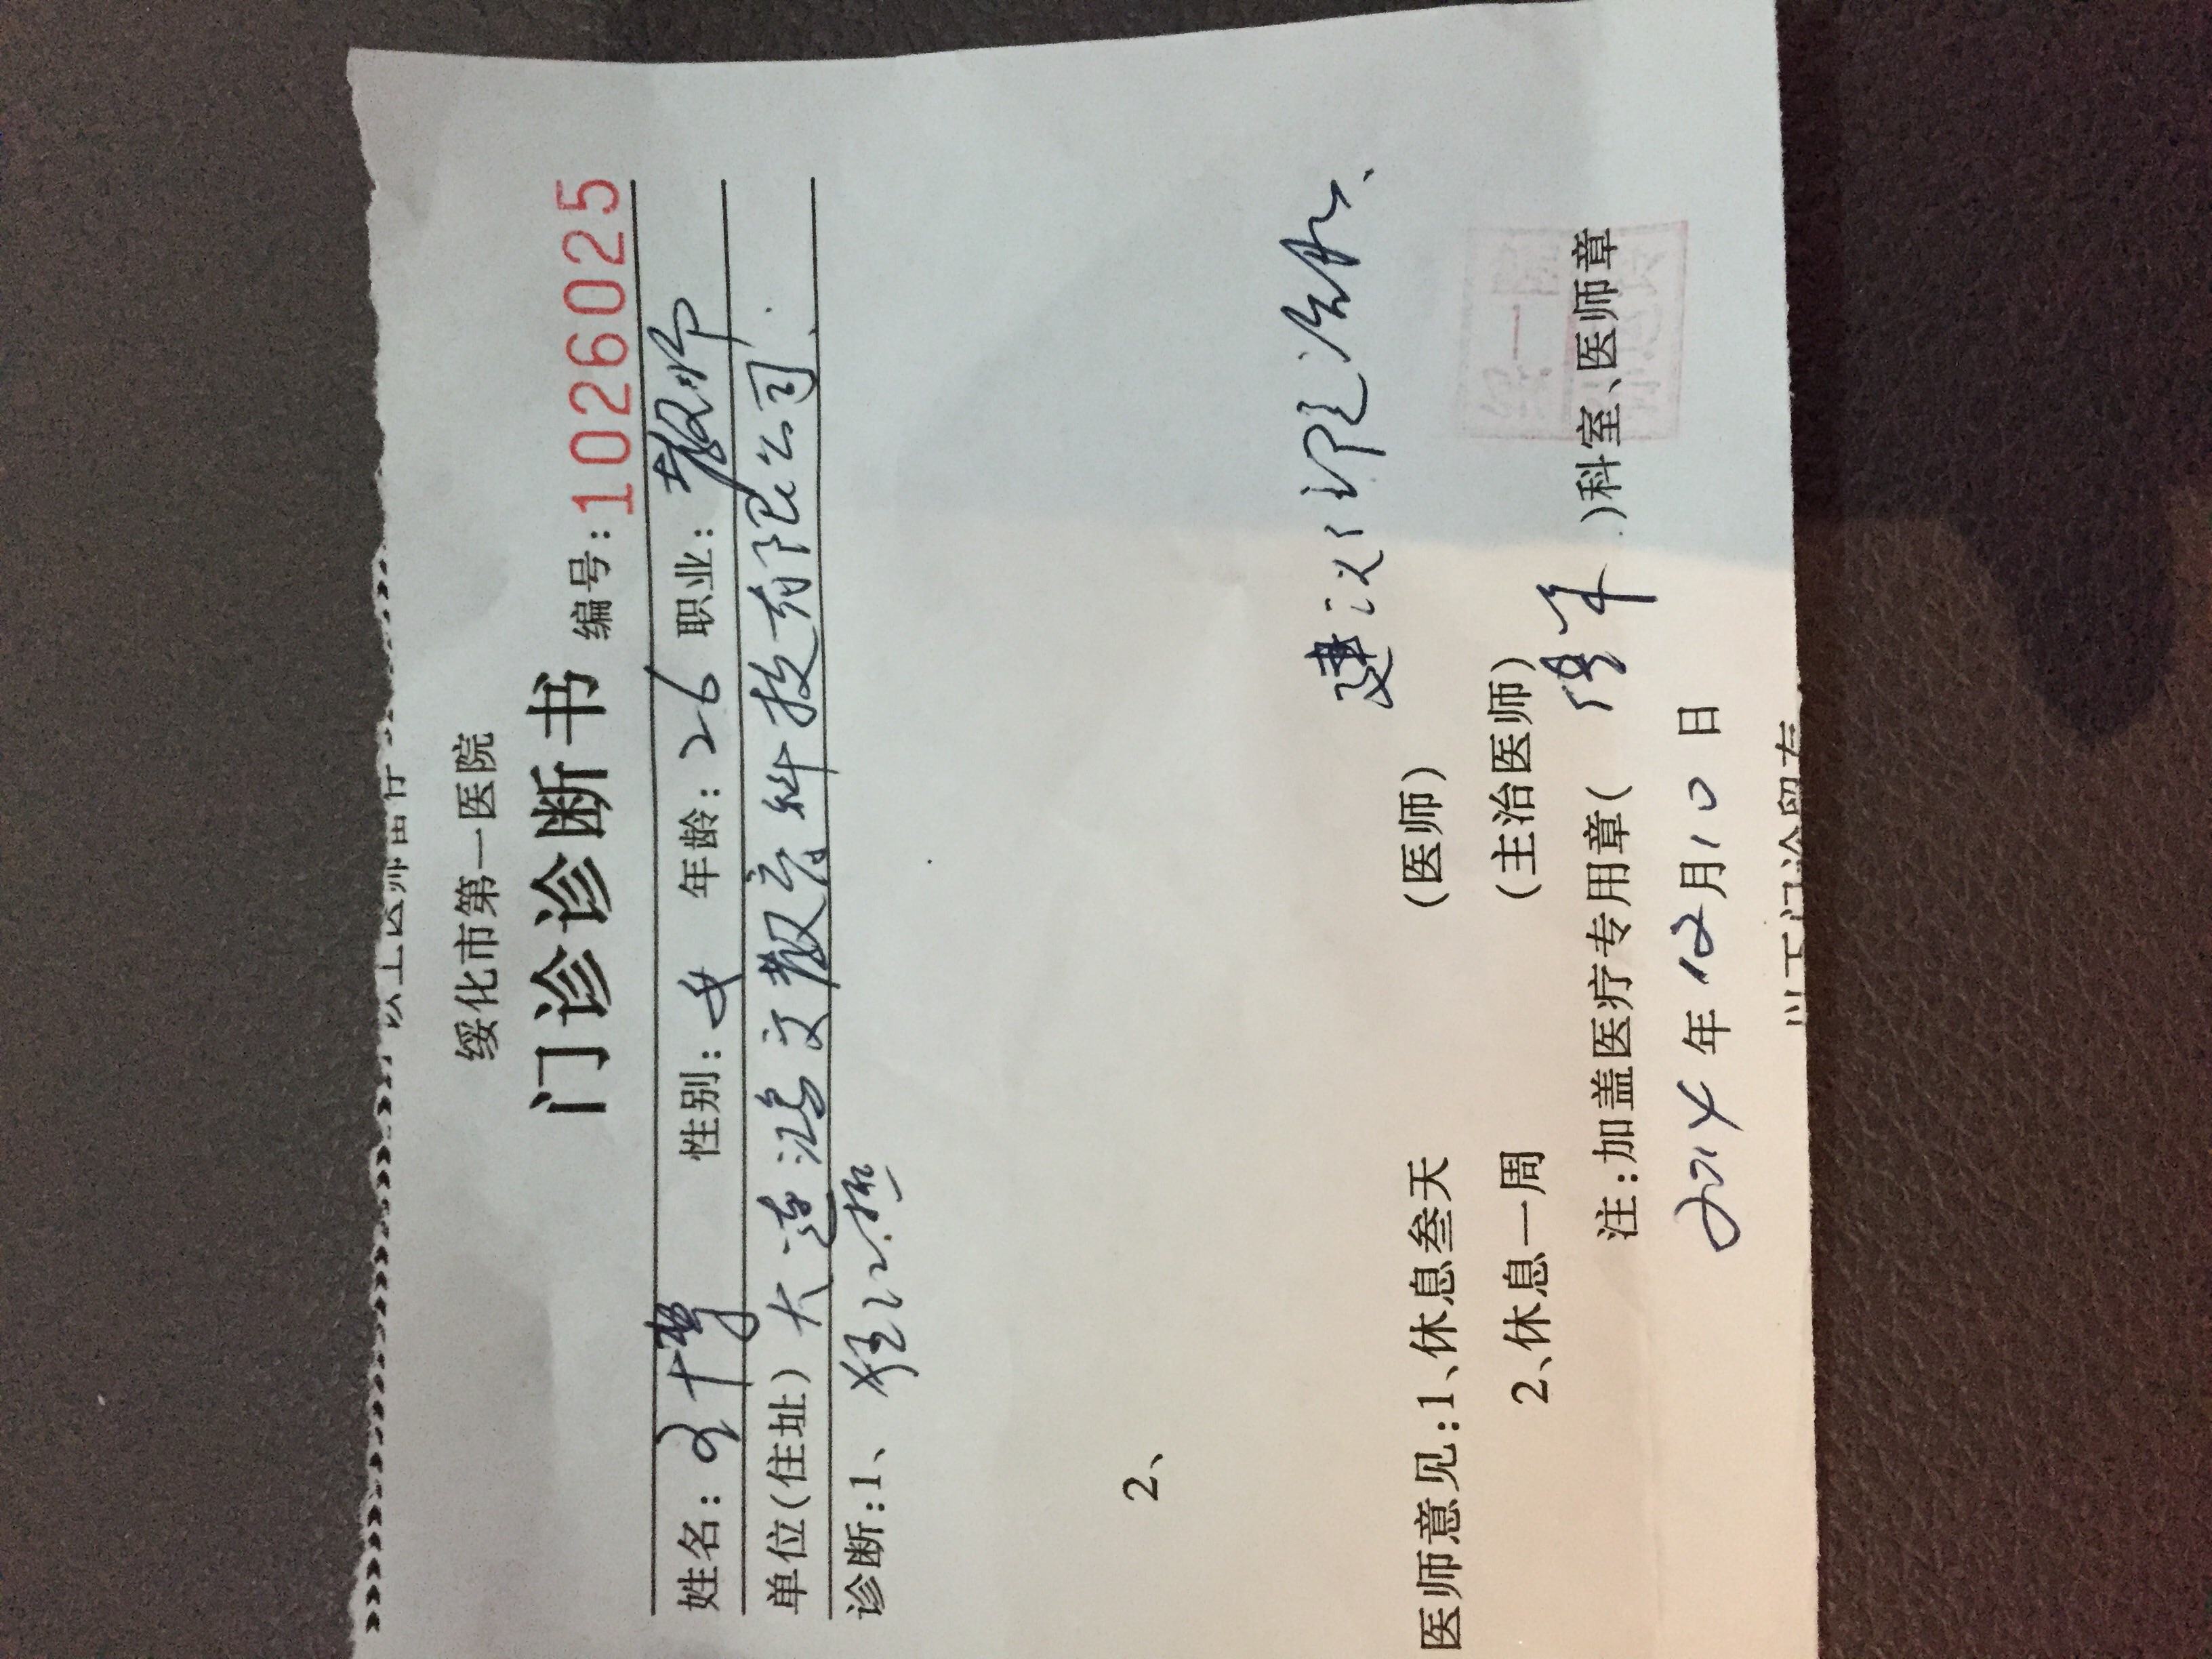 以上医师留存
绥化市第一医院
门诊诊断书 编号:1026025
姓名: 性别:女 年龄:26 职业:教师
单位(住址) 大连鸿文教育科技有限公司
诊断:1、
2、
建议住院治疗、
医师意见:1、休息叁天 (医师)
2、休息一周 (主治医师)
注:加盖医疗专用章( )科室、医师章
2014年12月10日
以下门诊留存